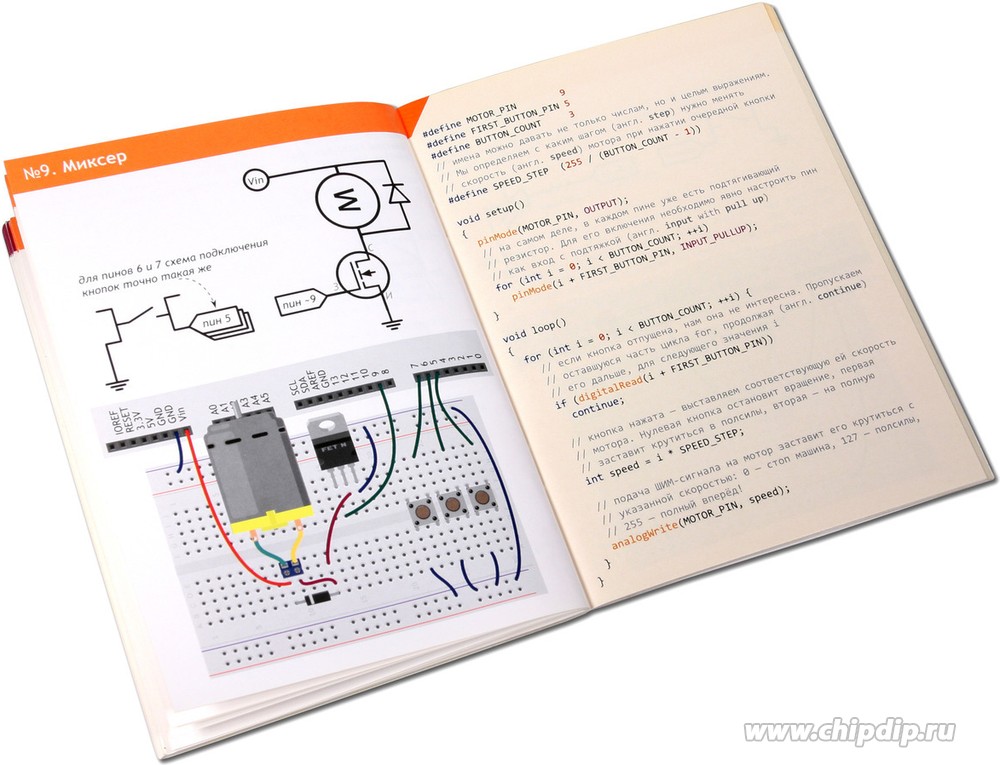 №9. Миксер
Vin
M
C
З
И
для пинов 6 и 7 схема подключения
кнопок точно такая же
пин 5
пин ~9
IOREF
RESET
3.3V
5V
GND
GND
Vin
A0
A1
A3
A4
A5
SCL
SDA
AREF
GND
13
12
11
10
9
8
7
6
5
4
3
2
1
0
FET N
#define MOTOR_PIN 9
#define FIRST_BUTTON_PIN 5
#define BUTTON_COUNT 3
// имена можно давать не только числам, но и целым выражениям.
// Мы определяем с каким шагом (англ. step) нужно менять
// скорость (англ. speed) мотора при нажатии очередной кнопки
#define SPEED_STEP (255 / (BUTTON_COUNT - 1))
void setup()
{
pinMode(MOTOR_PIN, OUTPUT);
// на самом деле, в каждом пине уже есть подтягивающий
// резистор. Для его включения необходимо явно настроить пин
// как вход с подтяжкой (англ. input with pull up)
for (int i = 0; i < BUTTON_COUNT; ++i)
pinMode(i + FIRST_BUTTON_PIN, INPUT_PULLUP);
}
void loop()
{
for (int i = 0; i < BUTTON_COUNT; ++i) {
// если кнопка отпущена, нам она не интересна. Пропускаем
// оставшуюся часть цикла for, продолжая (англ. continue)
// его дальше, для следующего значения i
if (digitalRead(i + FIRST_BUTTON_PIN))
continue;
// кнопка нажата — выставляем соответствующую ей скорость
// мотора. Нулевая кнопка остановит вращение, первая
// заставит крутиться в полсилы, вторая — на полную
int speed = i * SPEED_STEP;
// подача ШИМ-сигнала на мотор заставит его крутиться с
// указанной скоростью: 0 — стоп машина, 127 — полсилы,
// 255 — полный вперёд!
analogWrite(MOTOR_PIN, speed);
}
}
www.chipdip.ru